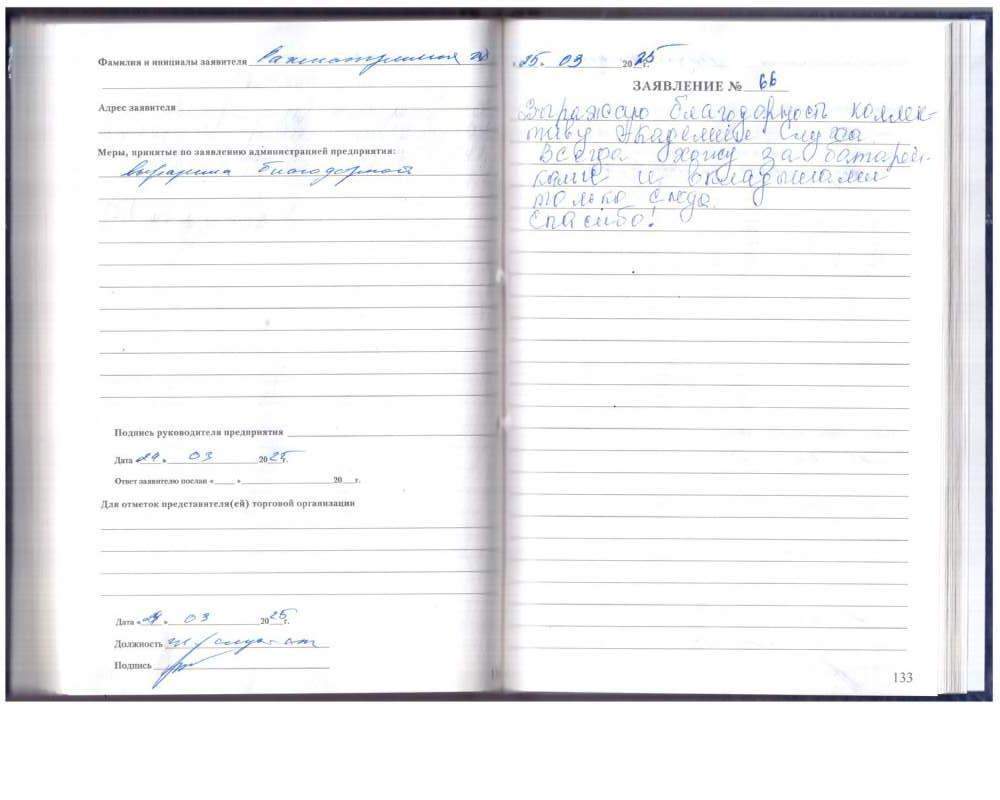 Фамилия и инициалы заявителя
Адрес заявителя
Меры, принятые по заявлению администрацией предприятия:
Подпись руководителя предприятия
Дата « 24 » 03 2025г.
Ответ заявителю послан «____» 20__г.
Для отметок представителя(ей) торговой организации
Дата « 24 » 03 2025г.
Должность
Подпись
25. 03 2025г.
ЗАЯВЛЕНИЕ № 66
Выражаю благодарность коллек-
тиву Академии Слуха.
Всегда хожу за батарей-
ками и вкладышами
только сюда.
Спасибо!
133